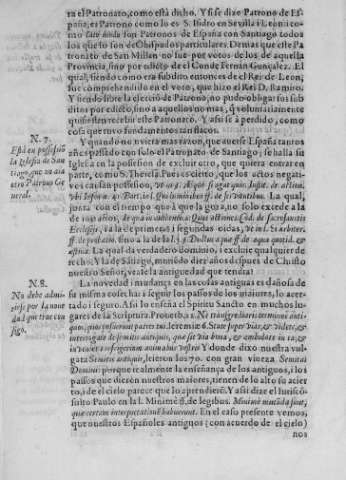 ra el Patronato, como está dicho. Y si se dize Patrono de Es-
paña, es Patrono como lo es S. Isidro en Sevilla i Leon: i co-
mo lato modo son Patronos de España con Santiago todos
los que lo son de Obispados particulares. Demas que este Pa
tronato de San Millan no fue por votos de los de aquella
Provincia, sino por edicto del Conde Fernan Gonçalez. El
qual, siendo como era subdito entonces de el Rei de Leon,
fue comprehendido en el voto, que hizo el Rei D. Ramiro.
Y siendo libre la eleccion de Patrono, no pudo obligar sus sub
ditos por edicto, sino a aquellos no mas, que voluntariamente
quisiessen recebir este Patronato. Y assi se à perdido, como
cosa que tuvo fundamentos tan flacos.
N. 7.
Está en possessiõ
la Iglesia de San
tiago, que no aia
otro Patrono Ge
neral.
Y quando no uviera mas razon, que averse España tantos
años passado con solo el Patronato de Santiago, se halla su
Iglesia en la possession de excluir otro, que quiera entrar en
parte, como S. Theresa. Pues es cierto, que los actos negati-
vos causan possession,
La qual,
junta con el tiempo que à que la goza, no solo excede a la
de 100 años,
i a la de primeras i segundas vidas,
La qual da verdadero dominio, i excluie qualquier de
recho: Y la de Sãtiago, menos de diez años despues de Christo
nuestro Señor, vease la antiguedad que tendra!
N. 8.
No debe admi-
tirse por la nove
dad que trae con
sigo.
La novedad i mudança en las cosas antiguas es dañosa de
su misma cosecha: i seguir los passos de los maiores, lo acer-
tado i seguro. Assi lo enseña el Spiritu Sancto en muchos lu-
gares de la Scriptura. Proverb. 22. Ne transgrediaris terminos anti-
quos, quos posuerunt patres tui. Ieremiæ 6. State super vias, & videte, &
interrogate de semitis antiquis, quæ sit via bona, & ambulate in ea, &
invenietis refrigerium animabus vestris: Y donde dixo nuestra vul-
gata Semitis antiquis, leieron los 70. con gran viveza Semitas
Domini: porque realmente la enseñança de los antiguos, i los
passos que dieron nuestros maiores, tienen de lo alto su acier
to, i de el cielo parece que lo aprendierõ. Y assi dize el Iurisco-
sulto Paulo en la l. Minimè ff. de legibus. Minimè mutãda sunt,
quæ certam interpretationẽ habuerunt. En el caso presente vemos,
que nuestros Españoles antiguos (con acuerdo de el cielo)
nos